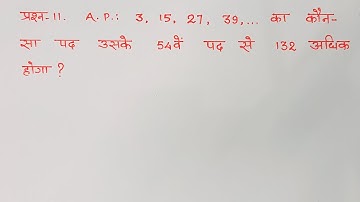 प्रश्न-11. A.P.: 3, 15, 27, 39,... का कौन-
सा पद उसके 54वें पद से 132 अधिक
होगा ?